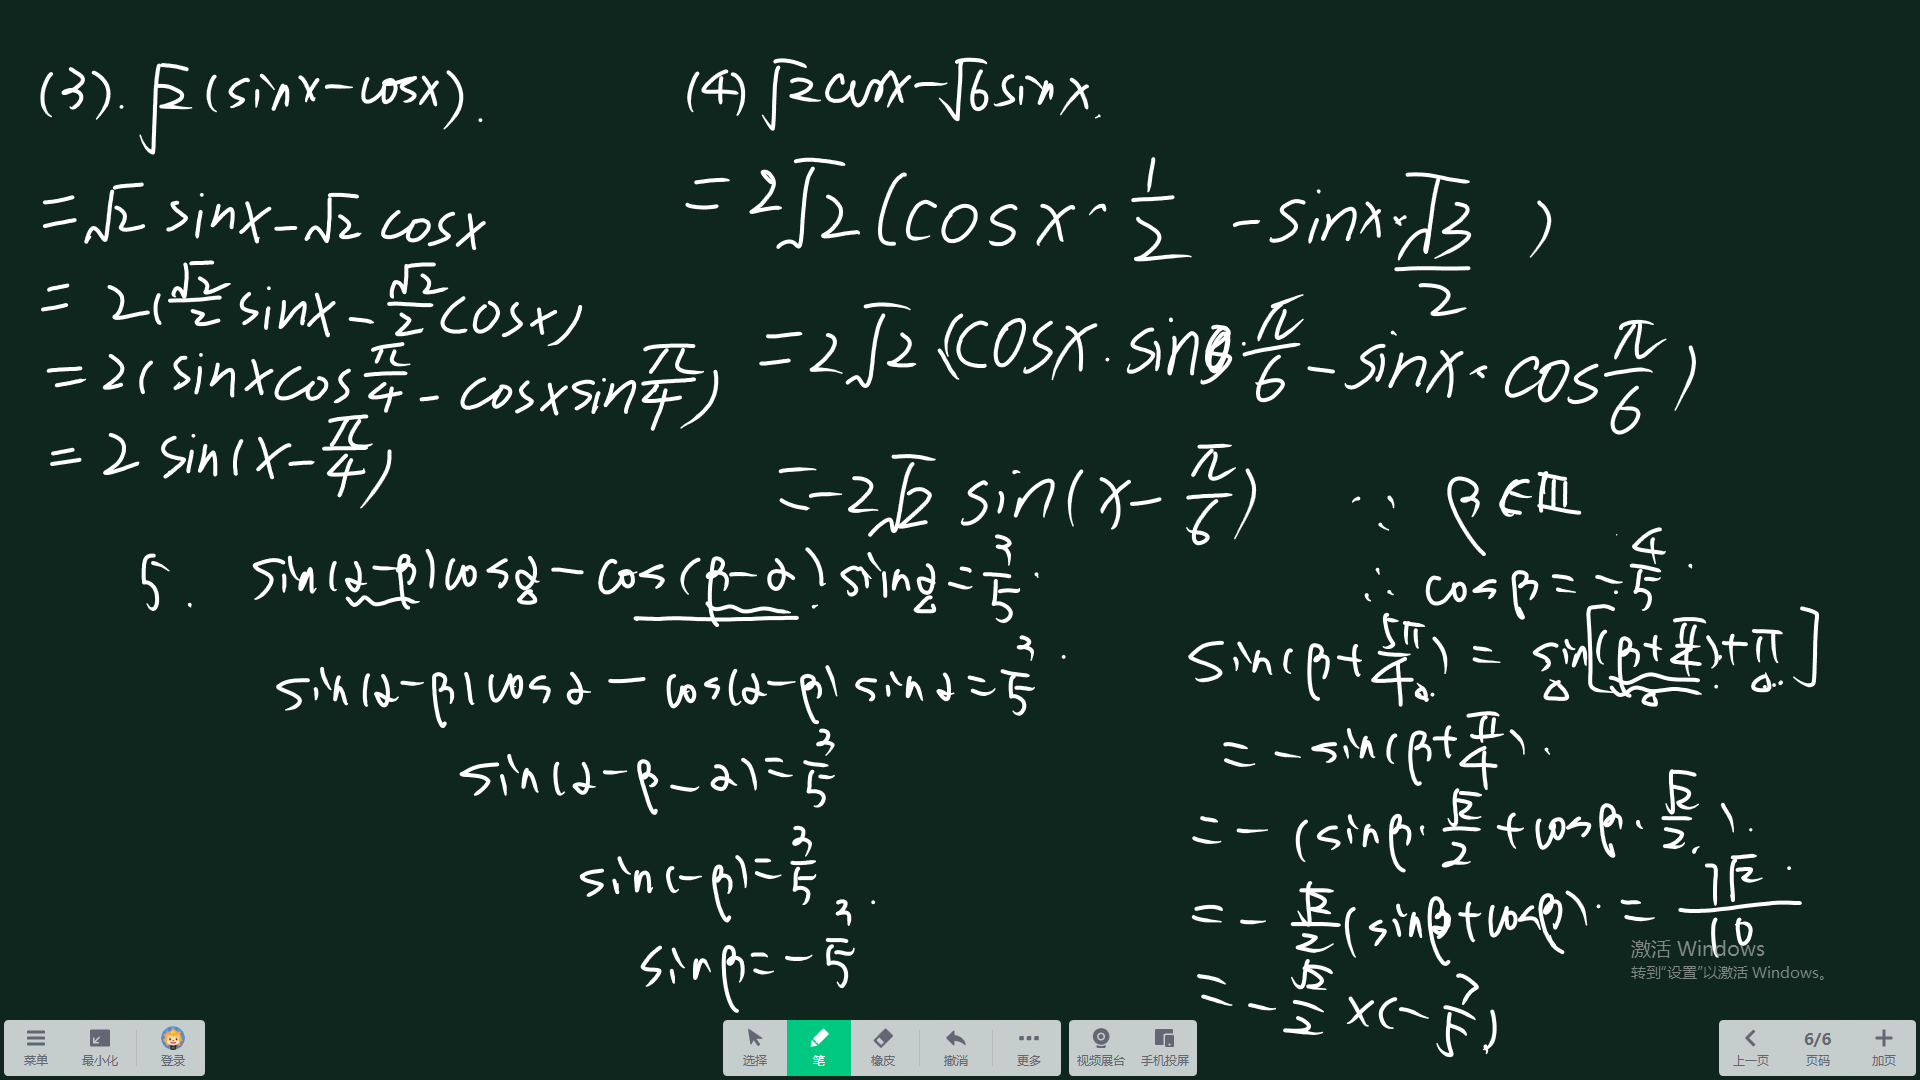 (3). √2 (sinx-cosx).
=√2 sinx-√2 cosx
= 2(√2/2 sinx-√2/2 cosx)
=2(sinxcosπ/4-cosxsinπ/4)
=2 sin(x-π/4)
(4)√2cosx-√6sinx.
=2√2(cosx·1/2-sinx·√3/2)
=2√2(cosx·sinπ/6-sinx·cosπ/6)
=-2√2 sin(x-π/6)
5. sin(α-β)cosα-cos(β-α)sinα=3/5.
sin(α-β)cosα-cos(α-β)sinα=3/5.
sin(α-β-α)=3/5
sin(-β)=3/5.
sinβ=-3/5
∵ β∈Ⅲ
∴ cosβ=-4/5.
sin(β+5π/4)=sin[(β+π/4)+π]
=-sin(β+π/4).
=-(sinβ·√2/2+cosβ·√2/2).
=-√2/2(sinβ+cosβ).=7√2/10
=-√2/2×(-7/5)
激活 Windows
转到“设置”以激活 Windows。
菜单 最小化 登录 选择 笔 橡皮 撤消 更多 视频展台 手机投屏 上一页 6/6 页码 加页